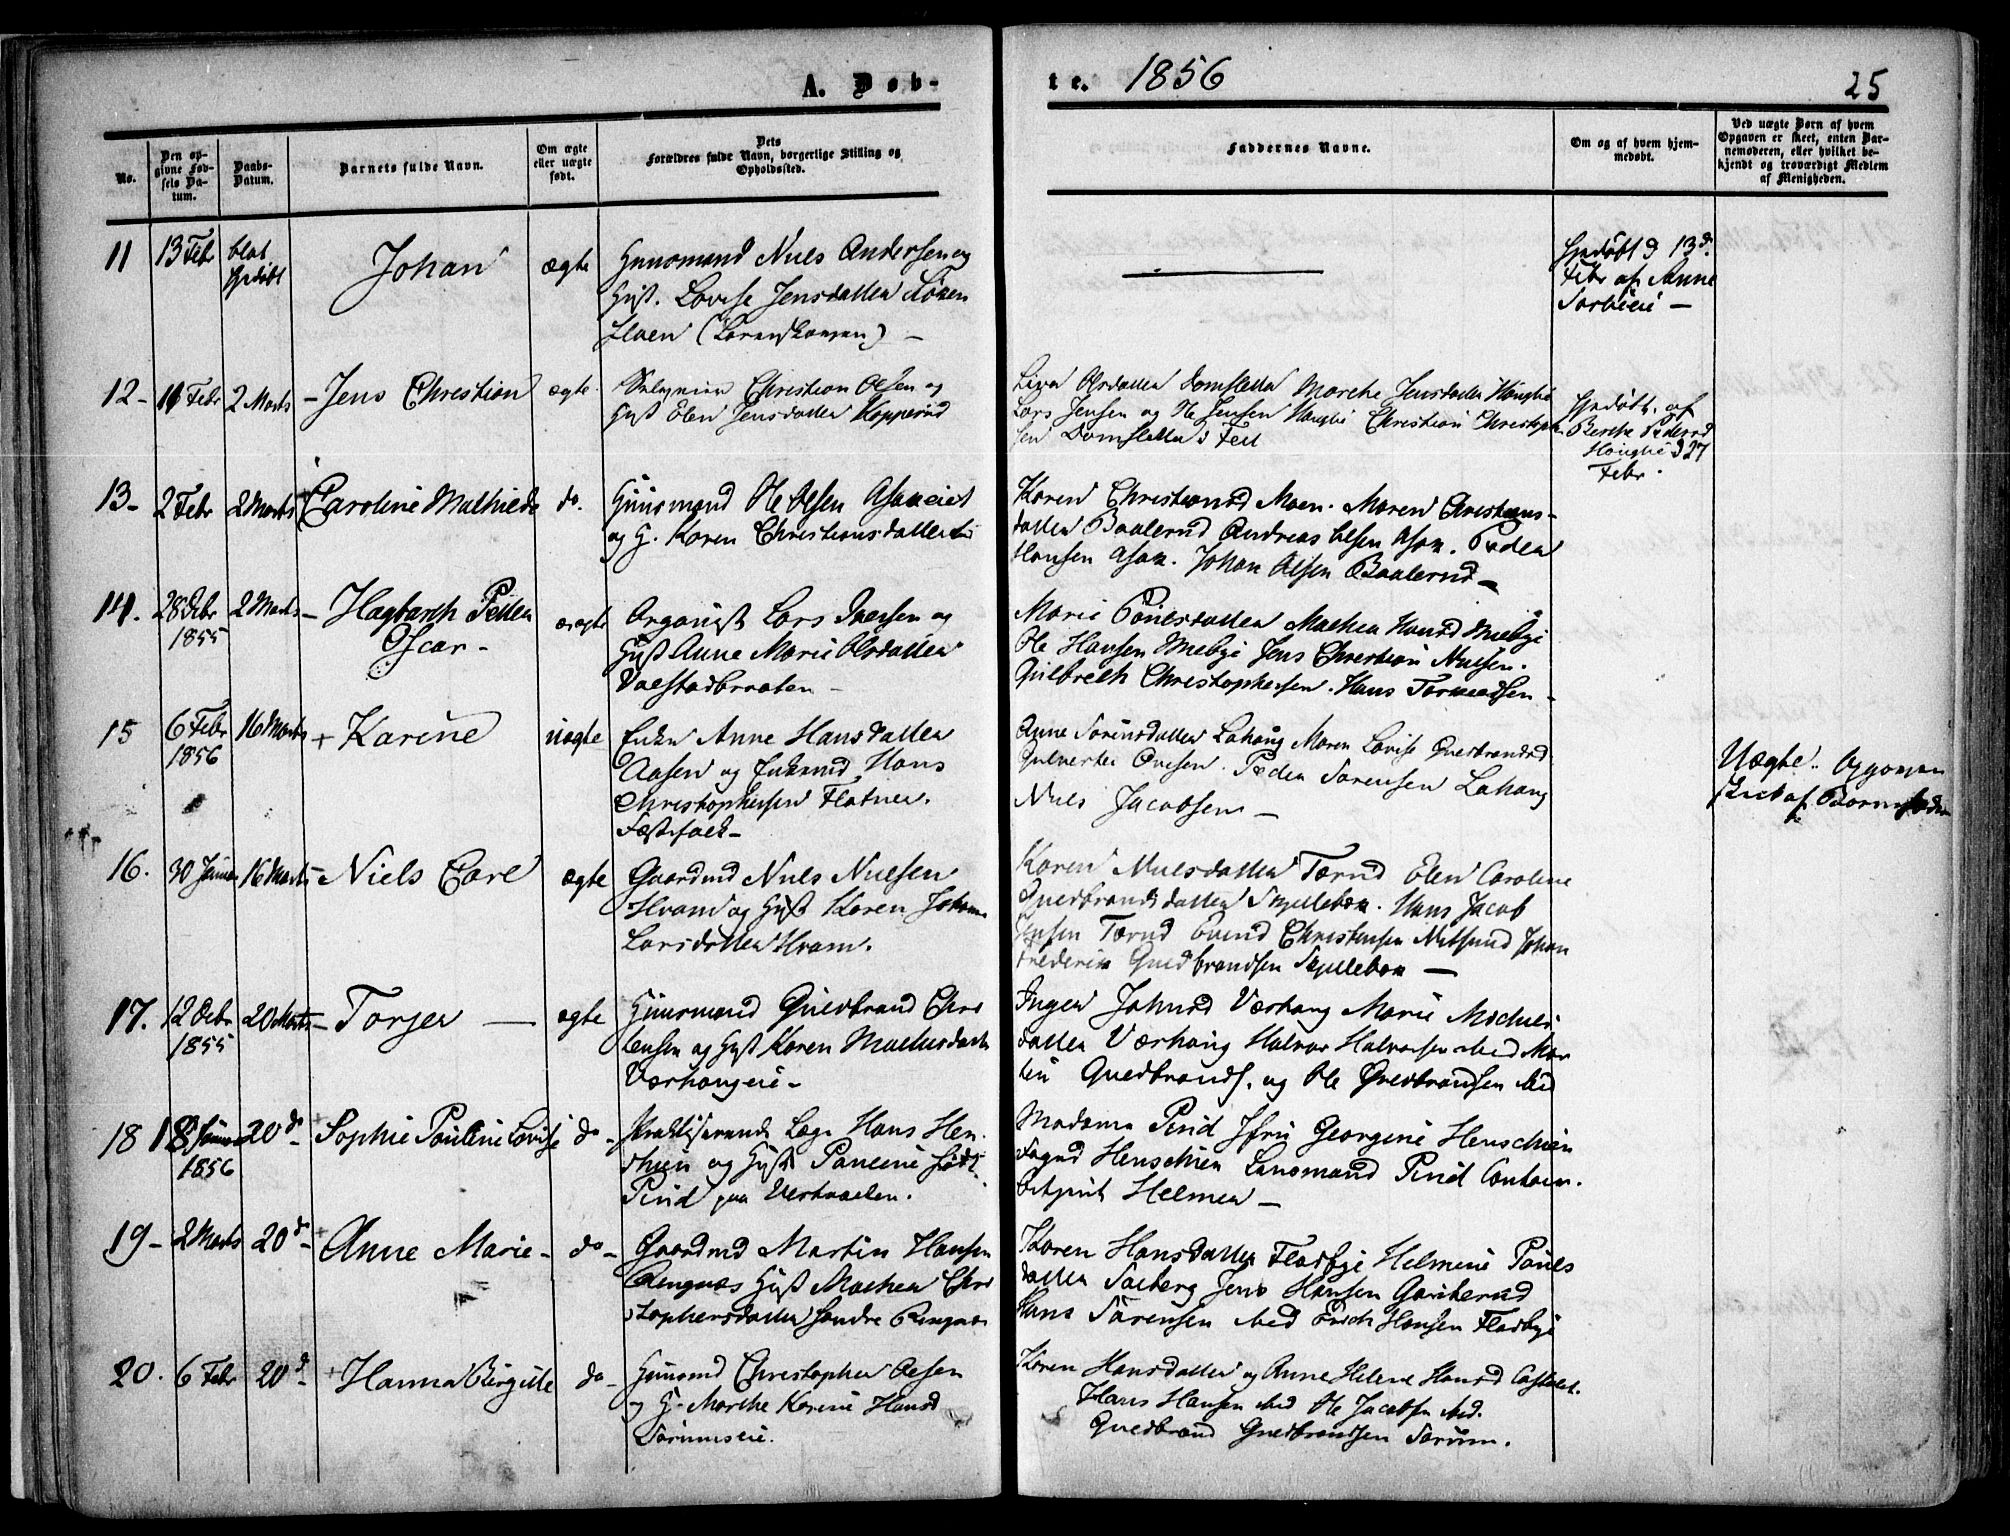 A. Døb-
te. 1856
25
No.
Den op-
givne Fød-
sels Da-
tum.
Daabs-
Datum.
Barnets fulde Navn.
Om ægte
eller uægte
født.
Dets
Forældres fulde Navn, borgerlige Stilling og
Opholdssted.
Faddernes Navne.
Om og af hvem hjem-
medøbt.
Ved uægte Børn af hvem
Opgaven er skeet, enten Bar-
nemoderen, eller hvilket be-
kjendt og troværdigt Medlem
af Menigheden.
11 13 Febr blot
hjdøbt
Johan ægte
Huusmand Niels Andersen og
Hust. Lovise Jensdatter
hjdøbt d 13d
Febr af Anne
12- 11 Febr 2 Marts - Jens Christian ægte
Christian Olsen og
Hust Elen Jensdatter Kopperud
Olsdatter Marthe Jensdatter
Lars Jensen og Ole Jensen Christian Christoph
hjdøbt. af
Berthe Pedersd
d 27
Febr.
13- 2 Febr 2 Marts Caroline Mathilde do.
Huusmand Ole Olsen Asakeiet
og H. Karen Christiansdatter
Karen Christiansd Moen. Maren Christians-
datter Baalerud Andreas Olsen Asak. Peder
Hansen Asak. Johan Olsen Baalerud -
14. 28 Debr
1855
2 Marts - Hagbarth Petter
Oscar -
ægte
Organist Lars Iversen og
Hust Anne Marie Olsdatter
Valstadbraaten -
Marie Poulsdatter Mathea Hansd
Ole Hansen Jens Christian Nielsen.
Gulbreth Christophersen. Hans
15 6 Febr
1856
16 Marts + Karine uægte
Enke Anne Hansdatter
Aasen og Enkemd Hans
Christophersen Flatner.
Fæstefolk -
Anne Sørensdatter Lahaug Maren Lovise
Peder Sørensen Lahaug
Niels Jacobsen -
Uægte. Opgaven
skeet af Barnefader
16. 30 Januar 16 Marts - Niels Carl ægte
Gaardmd Niels Nielsen
Hvam og Hust Karen Johanne
Larsdatter Hvam.
Karen Nielsdatter Tærud Elen Caroline
Guldbrandsdatter Skjellebæk. Hans Jacob
Jensen Tærud Evend Christensen Johan
Frederik Guldbrandsen Skjellebæk -
17. 12 Debr
1855
20 Marts - Torger - ægte
Huusmand Guldbrand Chri
stensen og Hust Karen
Værhaugeie -
Inger Johnsd Værhaug Marie
datter Værhaug Halvor Halvorsen ibid Mar
tin Guldbrands. og Ole Guldbrandsen ibid
18 18 Januar
1856
20 d - Sophie Pauline Lovise do -
Praktiserende Læge Hans Hen
schien og Hust Pauline født
Pind paa Vestvolden.
Madame Pind Jfru Georgine Henschien
Fogd Henschien Lensmand Pind
Helmer -
19 - 2 Marts 20 d - Anne Marie - do -
Gaardmd Martin Hansen
Ringnæs Hust Mathea Chri
stophersdatter Søndre Ringnæs
Karen Hansdatter Fladbye Helmine Pouls
datter Jens Hansen
Hans Sørensen ibid Erich Hansen Fladbye
20. 6 Febr 20 d - Hanna Birgitte do -
Huusmd Christopher Olsen
og H. Marthe Karine Hansd
Sørumseie.
Karen Hansdatter og Anne Helene Hansd
Hans Hansen ibid Ole Jacobsen ibid.
Guldbrand Guldbrandsen Sørum.